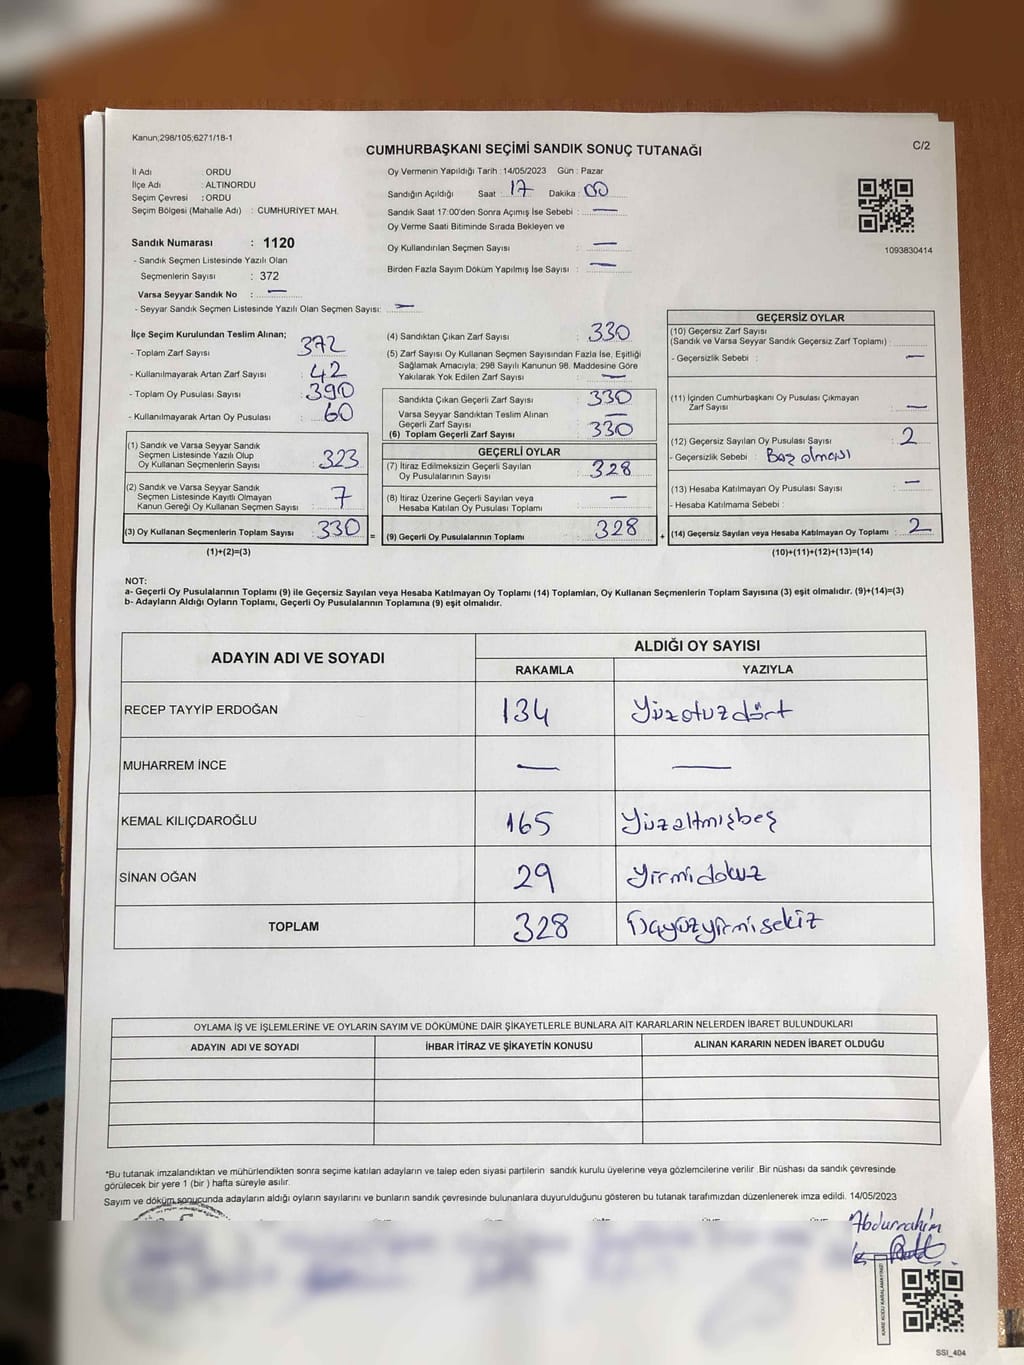 Kanun;298/105;6271/18-1
CUMHURBAŞKANI SEÇİMİ SANDIK SONUÇ TUTANAĞI
C/2
İl Adı : ORDU
İlçe Adı : ALTINORDU
Seçim Çevresi : ORDU
Seçim Bölgesi (Mahalle Adı) : CUMHURİYET MAH.
Sandık Numarası : 1120
- Sandık Seçmen Listesinde Yazılı Olan
Seçmenlerin Sayısı : 372
Varsa Seyyar Sandık No : —
- Seyyar Sandık Seçmen Listesinde Yazılı Olan Seçmen Sayısı: —
Oy Vermenin Yapıldığı Tarih : 14/05/2023 Gün : Pazar
Sandığın Açıldığı Saat : 17 Dakika : 00
Sandık Saat 17:00'den Sonra Açımış İse Sebebi : —
Oy Verme Saati Bitiminde Sırada Bekleyen ve
Oy Kullandırılan Seçmen Sayısı : —
Birden Fazla Sayım Döküm Yapılmış İse Sayısı : —
1093830414
İlçe Seçim Kurulundan Teslim Alınan;
- Toplam Zarf Sayısı : 372
- Kullanılmayarak Artan Zarf Sayısı : 42
- Toplam Oy Pusulası Sayısı : 390
- Kullanılmayarak Artan Oy Pusulası : 60
(1) Sandık ve Varsa Seyyar Sandık
Seçmen Listesinde Yazılı Olup
Oy Kullanan Seçmenlerin Sayısı : 323
(2) Sandık ve Varsa Seyyar Sandık
Seçmen Listesinde Kayıtlı Olmayan
Kanun Gereği Oy Kullanan Seçmen Sayısı : 7
(3) Oy Kullanan Seçmenlerin Toplam Sayısı : 330
(1)+(2)=(3)
(4) Sandıktan Çıkan Zarf Sayısı : 330
(5) Zarf Sayısı Oy Kullanan Seçmen Sayısından Fazla İse, Eşitliği
Sağlamak Amacıyla; 298 Sayılı Kanunun 98. Maddesine Göre
Yakılarak Yok Edilen Zarf Sayısı : —
Sandıkta Çıkan Geçerli Zarf Sayısı : 330
Varsa Seyyar Sandıktan Teslim Alınan
Geçerli Zarf Sayısı : —
(6) Toplam Geçerli Zarf Sayısı : 330
GEÇERLİ OYLAR
(7) İtiraz Edilmeksizin Geçerli Sayılan
Oy Pusulalarının Sayısı : 328
(8) İtiraz Üzerine Geçerli Sayılan veya
Hesaba Katılan Oy Pusulası Toplamı : —
= (9) Geçerli Oy Pusulalarının Toplamı : 328
GEÇERSİZ OYLAR
(10) Geçersiz Zarf Sayısı
(Sandık ve Varsa Seyyar Sandık Geçersiz Zarf Toplamı) :
- Geçersizlik Sebebi : —
(11) İçinden Cumhurbaşkanı Oy Pusulası Çıkmayan
Zarf Sayısı : —
(12) Geçersiz Sayılan Oy Pusulası Sayısı : 2
- Geçersizlik Sebebi : Boş olması
(13) Hesaba Katılmayan Oy Pusulası Sayısı : —
- Hesaba Katılmama Sebebi :
+ (14) Geçersiz Sayılan veya Hesaba Katılmayan Oy Toplamı : 2
(10)+(11)+(12)+(13)=(14)
NOT:
a- Geçerli Oy Pusulalarının Toplamı (9) ile Geçersiz Sayılan veya Hesaba Katılmayan Oy Toplamı (14) Toplamları, Oy Kullanan Seçmenlerin Toplam Sayısına (3) eşit olmalıdır. (9)+(14)=(3)
b- Adayların Aldığı Oyların Toplamı, Geçerli Oy Pusulalarının Toplamına (9) eşit olmalıdır.
ADAYIN ADI VE SOYADI ALDIĞI OY SAYISI
RAKAMLA YAZIYLA
RECEP TAYYİP ERDOĞAN 134 Yüzotuzdört
MUHARREM İNCE — —
KEMAL KILIÇDAROĞLU 165 Yüzaltmışbeş
SİNAN OĞAN 29 Yirmidokuz
TOPLAM 328 Üçyüzyirmisekiz
OYLAMA İŞ VE İŞLEMLERİNE VE OYLARIN SAYIM VE DÖKÜMÜNE DAİR ŞİKAYETLERLE BUNLARA AİT KARARLARIN NELERDEN İBARET BULUNDUKLARI
ADAYIN ADI VE SOYADI İHBAR İTİRAZ VE ŞİKAYETİN KONUSU ALINAN KARARIN NEDEN İBARET OLDUĞU
*Bu tutanak imzalandıktan ve mühürlendikten sonra seçime katılan adayların ve talep eden siyasi partilerin sandık kurulu üyelerine veya gözlemcilerine verilir .Bir nüshası da sandık çevresinde
görülecek bir yere 1 (bir ) hafta süreyle asılır.
Sayım ve döküm sonucunda adayların aldığı oyların sayılarını ve bunların sandık çevresinde bulunanlara duyurulduğunu gösteren bu tutanak tarafımızdan düzenlenerek imza edildi. 14/05/2023
Abdurrahim
KARE KODU KARALAMAYINIZ!
SSİ_404